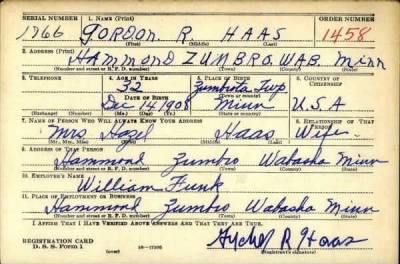 SERIAL NUMBER 1. NAME (Print) ORDER NUMBER
1766 GORDON R. HAAS 1458
(First) (Middle) (Last)
2. ADDRESS (Print)
HAMMOND ZUMBRO WAB. Minn
(Number and street or R. F. D. number) (Town) (County) (State)
3. TELEPHONE 4. AGE IN YEARS 5. PLACE OF BIRTH 6. COUNTRY OF CITIZENSHIP
32 Zumbrota Twp
DATE OF BIRTH (Town or county)
Dec 14 1908 Minn U.S.A
(Exchange) (Number) (Mo.) (Day) (Yr.) (State or country)
7. NAME OF PERSON WHO WILL ALWAYS KNOW YOUR ADDRESS 8. RELATIONSHIP OF THAT PERSON
Mrs Hazel Haas Wife
(Mr., Mrs., Miss) (First) (Middle) (Last)
9. ADDRESS OF THAT PERSON
Hammond Zumbro Wabasha Minn
(Number and street or R. F. D. number) (Town) (County) (State)
10. EMPLOYER'S NAME
William Funk
11. PLACE OF EMPLOYMENT OR BUSINESS
Hammond Zumbro Wabasha Minn
(Number and street or R. F. D. number) (Town) (County) (State)
I AFFIRM THAT I HAVE VERIFIED ABOVE ANSWERS AND THAT THEY ARE TRUE.
REGISTRATION CARD
D. S. S. Form 1 (over) R Haas
(Registrant's signature)